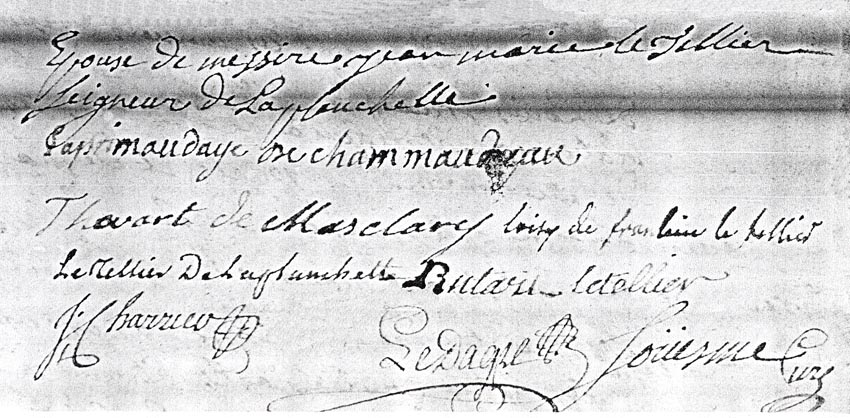 Epouse de messire jean marie le tellier
seigneur de Laplanchelle
Laprimaudaye de chammaudrau
Thouart de Masclary de franleine le tellier
Le Tellier De Laplanchette Rutaru letellier
Charruo
Ledagre Soüesme Curé